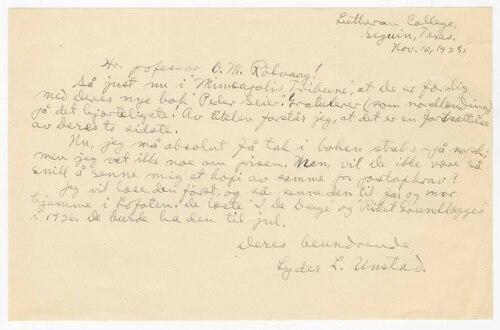 Lutheran College,
Seguin, Texas.
Nov. 10, 1928.
Hr. professor O. M. Rölvaag!
Så just nu i "Minneapolis Tribune", at De er færdig
med Deres nye bok "Peder Seier". Gratulerer (som nordlending)
på det hjerteligste! Av titelen forstår jeg, at det er en fortsættelse
av Deres to sidste.
Nu, jeg må absolut få tak i boken straks – på norsk,
men jeg vet ikke noe om prisen. Men, vil De ikke være så
snill å senne mig et kopi av samme pr. postoppkrav?
Jeg vil læse den først, og så senne den til far og mor
hjemme i Lofoten. De læste "I De Dage" og "Riket Grundlægges"
i 1926. De burde ha den til jul.
Deres beundrende
Lyder L. Unstad.